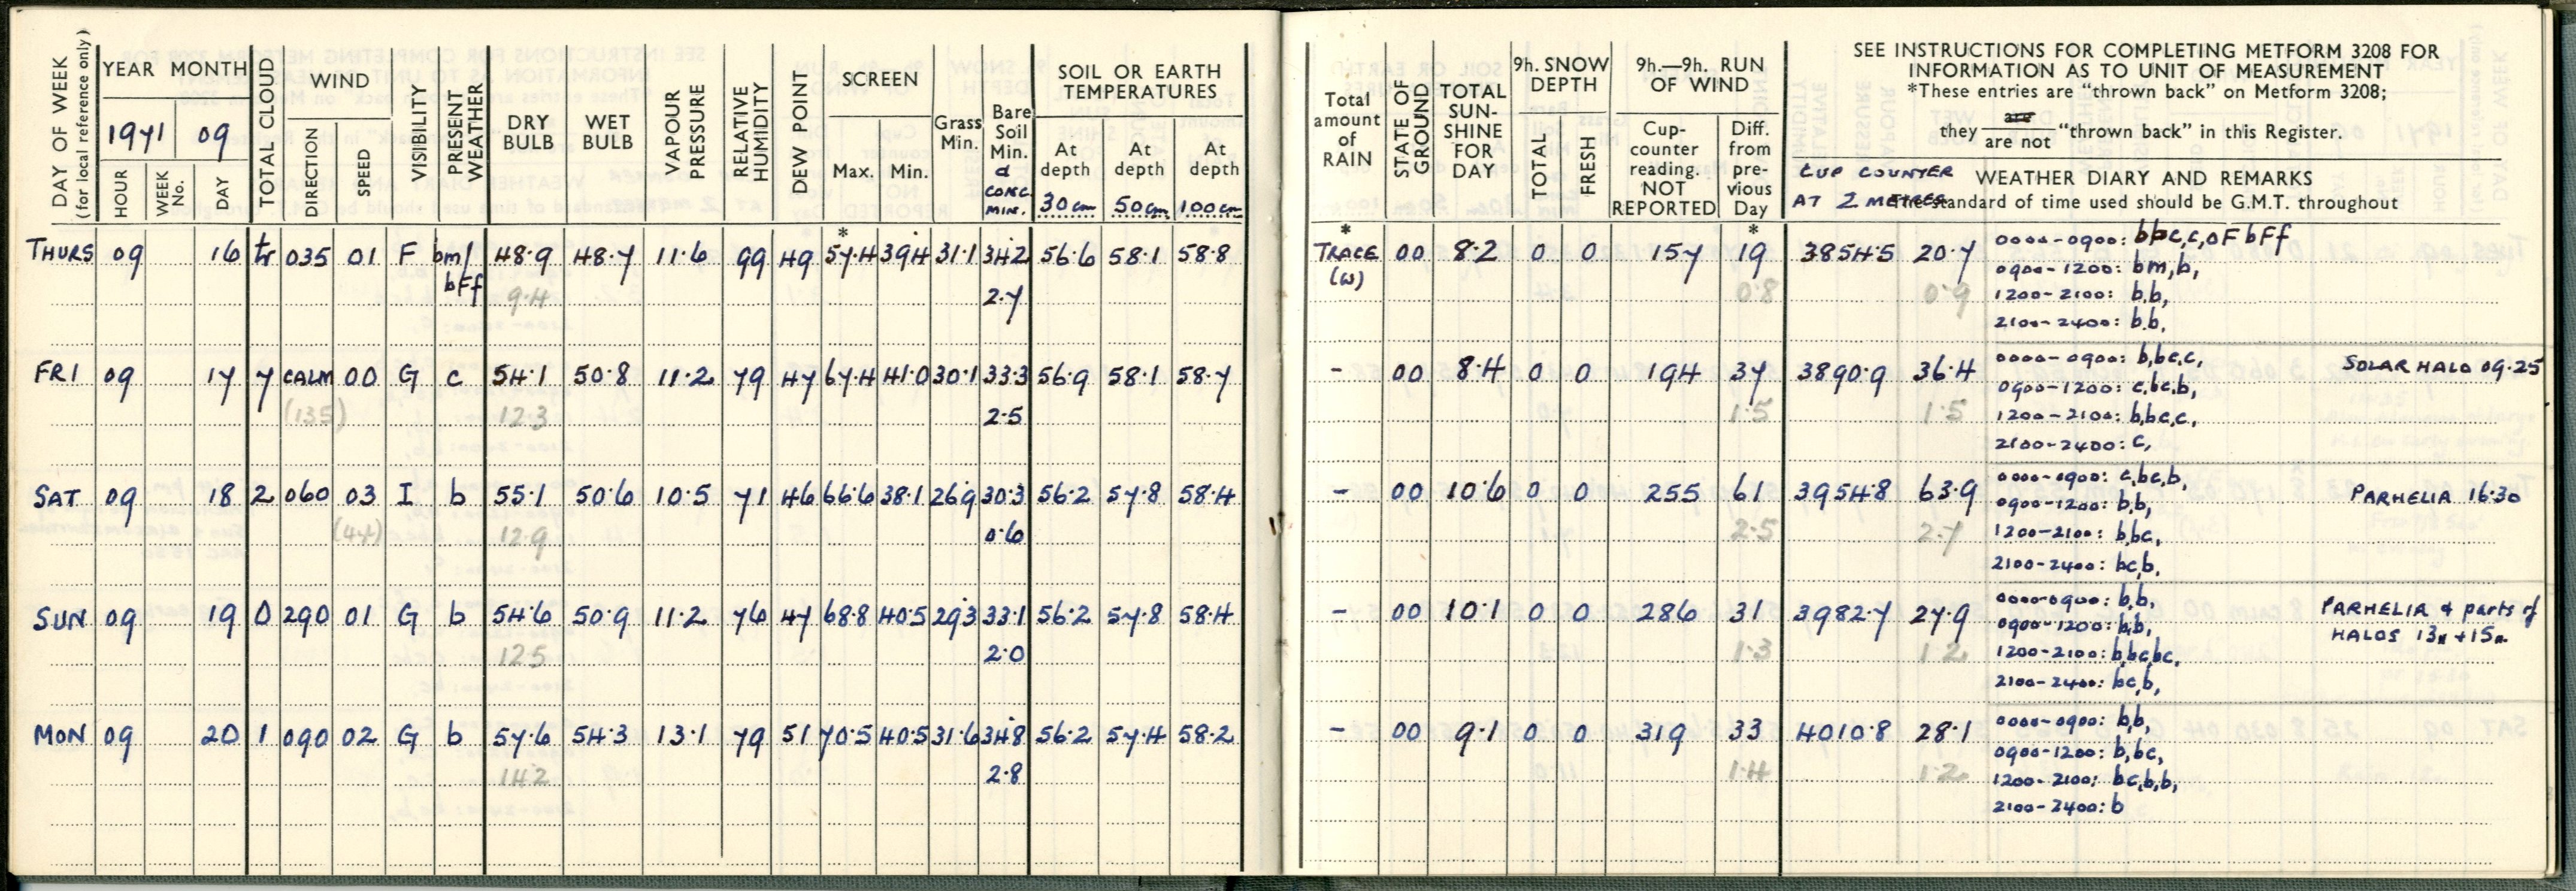 DAY OF WEEK
(for local reference only)
YEAR MONTH
1971 09
HOUR
WEEK No.
DAY
TOTAL CLOUD
WIND
DIRECTION
SPEED
VISIBILITY
PRESENT WEATHER
DRY BULB
WET BULB
VAPOUR PRESSURE
RELATIVE HUMIDITY
DEW POINT
SCREEN
Max. Min.
Grass Min.
Bare Soil Min.
d
CONC.
MIN.
SOIL OR EARTH
TEMPERATURES
At depth 30 cm
At depth 50 cm
At depth 100 cm
THURS 09 16 tr 035 01 F bm/ 48.9 48.7 11.6 99 49 57.4 39.4 31.1 34.2 56.6 58.1 58.8
bFf 9.4 2.7
FRI 09 17 7 CALM 00 G c 54.1 50.8 11.2 79 47 67.4 41.0 30.1 33.3 56.9 58.1 58.7
(135) 12.3 2.5
SAT 09 18 2 060 03 I b 55.1 50.6 10.5 71 46 66.6 38.1 26.9 30.3 56.2 57.8 58.4
(44) 12.9 0.6
SUN 09 19 0 290 01 G b 54.6 50.9 11.2 76 47 68.8 40.5 29.3 33.1 56.2 57.8 58.4
12.5 2.0
MON 09 20 1 090 02 G b 57.6 54.3 13.1 79 51 70.5 40.5 31.6 34.8 56.2 57.4 58.2
14.2 2.8
Total amount of RAIN
STATE OF GROUND
TOTAL SUN-SHINE FOR DAY
9h. SNOW DEPTH
TOTAL
FRESH
9h.—9h. RUN OF WIND
Cup-counter reading. NOT REPORTED
Diff. from pre-vious Day
SEE INSTRUCTIONS FOR COMPLETING METFORM 3208 FOR
INFORMATION AS TO UNIT OF MEASUREMENT
*These entries are "thrown back" on Metform 3208;
they are "thrown back" in this Register.
are not
CUP COUNTER
AT 2 METRES
WEATHER DIARY AND REMARKS
The standard of time used should be G.M.T. throughout
* *
TRACE 00 8.2 0 0 157 19 3854.5 20.7 0000-0900: bbc,c,oFbFf
(W) 0900-1200: bm,b,
0.8 0.9 1200-2100: b,b,
2100-2400: b,b,
- 00 8.4 0 0 194 37 3890.9 36.4 0000-0900: b,bc,c, SOLAR HALO 09.25
0900-1200: c,bc,b,
1.5 1.5 1200-2100: b,bc,c,
2100-2400: c,
- 00 10.6 0 0 255 61 3954.8 63.9 0000-0900: c,bc,b, PARHELIA 16.30
0900-1200: b,b,
2.5 2.7 1200-2100: b,bc,
2100-2400: bc,b,
- 00 10.1 0 0 286 31 3982.7 27.9 0000-0900: b,b, PARHELIA & parts of
0900-1200: b,b, HALOS 13h + 15h
1.3 1.2 1200-2100: b,bc,bc,
2100-2400: bc,b,
- 00 9.1 0 0 319 33 4010.8 28.1 0000-0900: b,b,
0900-1200: b,bc,
1.4 1.2 1200-2100: bc,b,b,
2100-2400: b